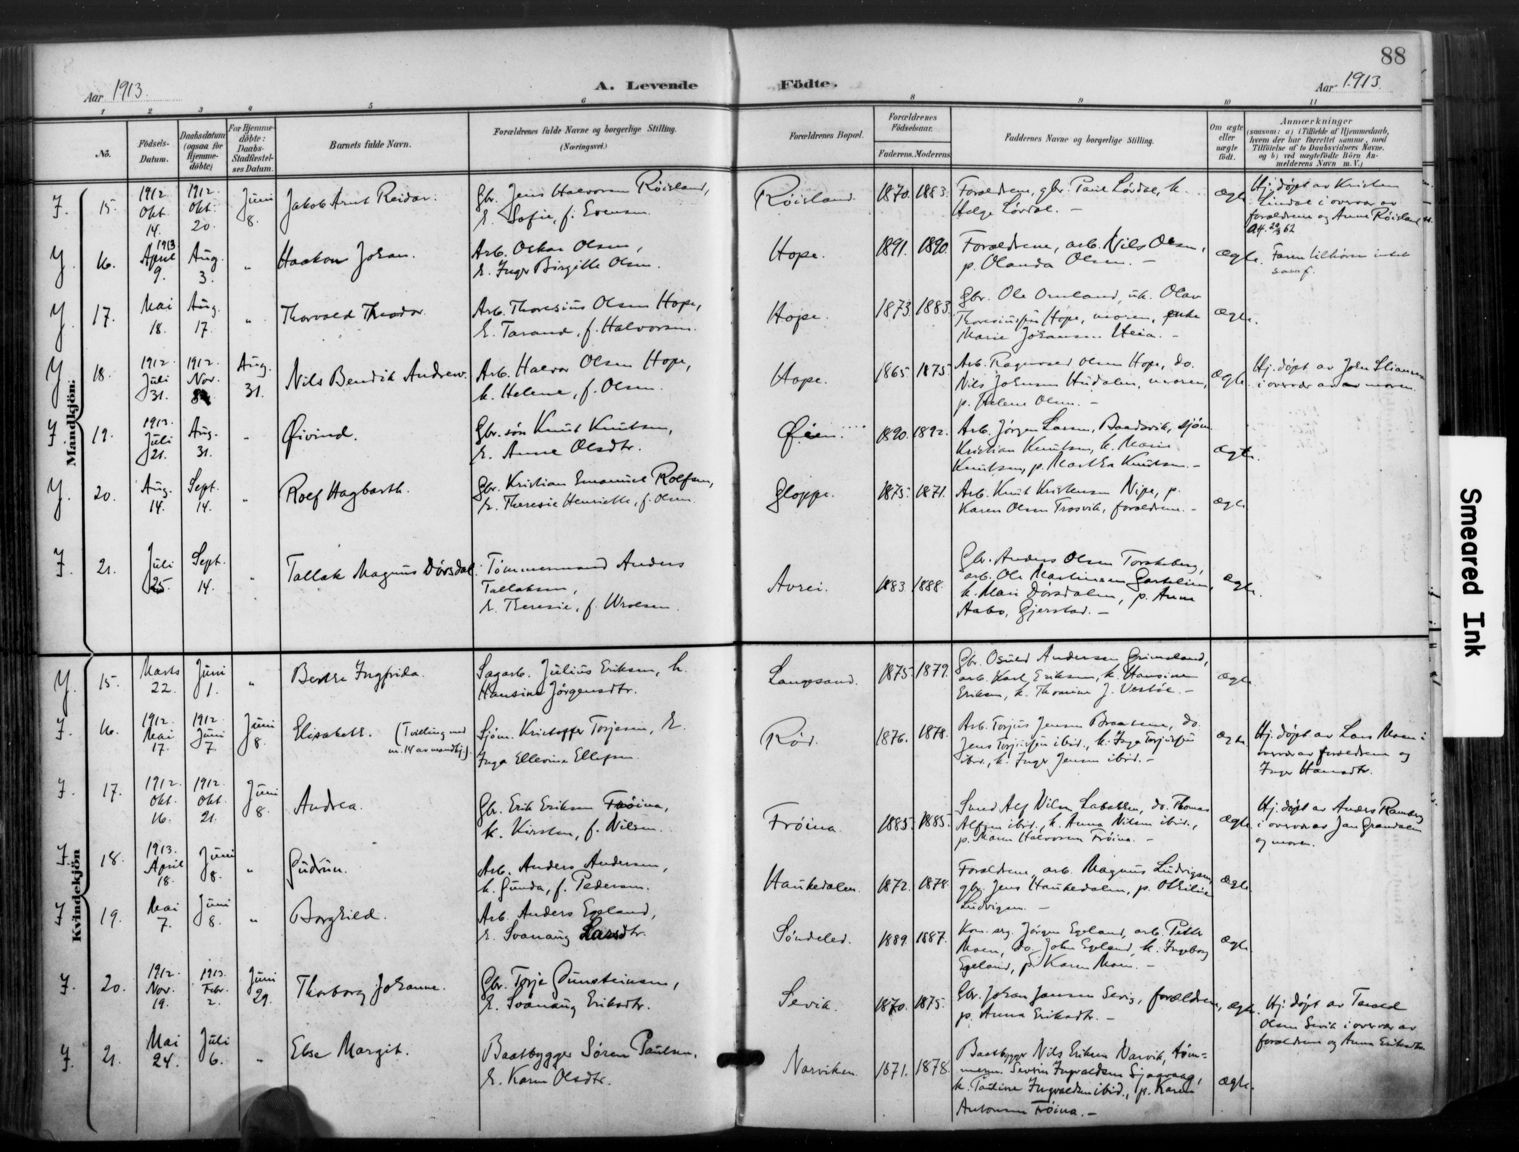 88
Aar 1913.
A. Levende Födte.
Aar 1913.
1 2 3 4 5 6 8 9 10 11
No.
Födsels-Datum.
Daabsdatum (ogsaa for Hjemme-döbte)
For Hjemme-döbte: Daabs-Stadfæstel-ses Datum.
Barnets fulde Navn.
Forældrenes fulde Navne og borgerlige Stilling.
(Næringsvei.)
Forældrenes Bopæl.
Forældrenes Födselsaar.
Faderens. Moderens.
Faddernes Navne og borgerlige Stilling.
Om ægte eller uægte födt.
Anmærkninger
Mandkjön.
15. 1912 Okt. 14. 1912. Okt. 20. Juni 8. Jakob Arnt Reidar.
Gbr. Jens Halvorsen Röisland,
h. Sofie, f. Evensen
Röisland. 1870. 1883.
Forældrene, gbr. Paul Lördal, k.
Helge Lördal. –
ægte
Hj. döpt av Kristen
Lindal i overvær av
forældrene og Anne Röisland
16. 1913 April 9. Aug. 3. „ Haakon Johan.
Arb. Oskar Olsen,
h. Inger Birgitte Olsen.
Hope. 1891. 1890.
Forældrene, arb. Nils Olsen,
p. Olanda Olsen. –
ægte.
17. Mai 18. Aug. 17. „ Thorvald Theodor.
Arb. Thoresius Olsen Hope,
h. Tarand, f. Halvorsen.
Hope. 1873 1883.
Gbr. Ole Omland, uk. Olav
Hope, moren, enke
Marie Johansen Heia. –
ægte.
18. 1912. Juli 31. 1912. Nov. Aug. 31. Nils Bendik Andreas.
Arb. Halvor Olsen Hope,
h. Helene, f. Olsen.
Hope. 1865 1875
Arb. Ragnvald Olsen Hope, do.
Nils Johnsen Hudalen, moren,
p. Helene Olsen. –
ægte
Hj. döpt av John
i overvær av moren.
19. Juli 21. Aug. 31. „ Øivind.
Gbr. sön Knut Knutsen,
h. Anne Olsdtr.
Øien. 1890. 1892.
Arb. Jörgen Larsen, Baasvik, sjöm.
Kristian Knutsen, k. Marie
Knutsen, p. Martha Knutsen. –
ægte.
20. Aug. 14. Sept. 14. „ Rolf Hagbarth.
Gbr. Kristian Emanuel Rolfsen,
h. Theresie Henriette, f. Olsen
Gloppe. 1875. 1871.
Arb. Knut Kristensen Nipe, p.
Karen Olsen Trosvik, forældrene. –
ægte.
21. Juli 25. Sept. 14. „ Tallak Magnus Dörsdal.
Tömmermand Anders
Tallaksen,
h. Theresie, f. Wroldsen.
Avrei. 1883. 1888.
Gbr. Anders Olsen Torskberg,
arb. Ole Martinsen
k. Mari Dörsdalen, p. Anna
Aabo, Gjerstad. –
ægte.
Kvindekjön
15. Marts 22. Juni 1. „ Berthe Ingfrida.
Sagarb. Julius Eriksen, h.
Hansine Jörgensdtr.
Langsand. 1875. 1879.
Gbr. Osuld Andersen Grimeland,
arb. Karl Eriksen, k. Hansine
Eriksen, k. Thomine J. Vestöl. –
ægte.
16. 1912. Mai 17. 1912. Juni 7. Juni 8. Elisabeth. (Tvilling med
nr. 14 av mandkj.)
Sjöm. Kristoffer Terjesen, h.
Inga Ellevine Ellefsen.
Röd. 1876. 1878.
Arb. Terjus Jensen
ibid., k. Inger Jensen ibid. –
ægte
Hj. döpt av Lars Moen i
overvær av forældrene og
Inger Hansdtr.
17. 1912. Okt. 16. 1912. Okt. 21. Juni 8. Andrea.
Gbr. Erik Eriksen Fröina,
h. Kirsten, f. Nilsen.
Fröina. 1885. 1885.
Smed Alf Nilsen do. Thomas
Alfsen ibid., k. Anna Nilsen ibid.,
p. Halvorsen Fröina. –
ægte
Hj. döpt av Anders Ramberg
i overvær av Jan
og moren.
18. 1913. April 18. Juni 8. „ Gudrun.
Arb. Anders Andersen,
h. Gunda, f. Pedersen.
Haukedalen. 1872. 1878.
Forældrene, arb. Magnus Ludvigsen,
gbr. Jens Haukedalen, p. Othilie
Ludvigsen. –
ægte.
19. Mai 7. Juni 8. „ Borghild.
Arb. Anders Egeland,
h. Svanaug Larsdtr.
Söndeled. 1889. 1887.
Jörgen Egeland, arb. Peder
Moen, do. John Egeland, k. Ingeborg
Egeland, p. Karen Moen. –
ægte.
20. 1912. Nov. 19. 1913. Febr. 2. Juni 29. Thorborg Johanne.
Gbr. Terje Gunsteinsen,
h. Svanaug Eriksdtr.
Sevik. 1870. 1875.
Gbr. Johan Jansen Sevig, forældrene,
p. Anna Eriksdtr. –
ægte.
Hj. döpt av Tarald
Olsen Sevik i overvær av
forældrene og Anna Eriksdtr.
21. Mai 24. Juli 6. „ Else Margit.
Baatbygger Sören Paulsen,
h. Karen Olsdtr.
Narviken. 1871. 1878.
Baatbygger Nils Eriksen Narvik, töm-
merm. Severin Ingvaldsen
k. Ingvaldsen ibid., p. Karen
Antonsen Fröina. –
ægte.
Smeared Ink